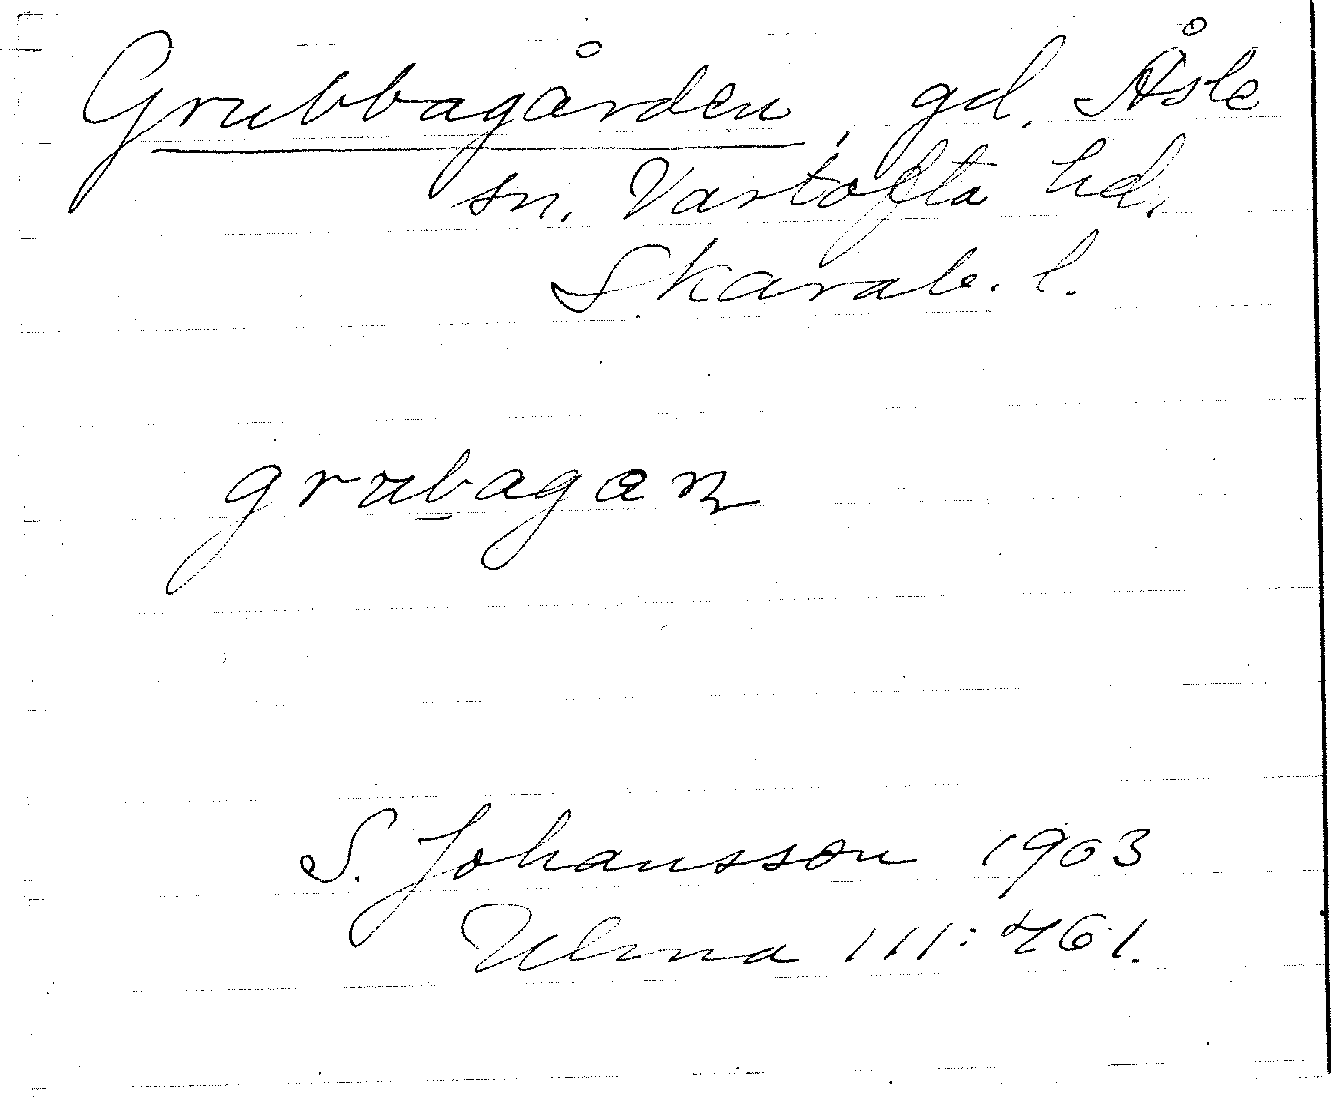 Grubbagården, gd. Åsle
sn. Vartofta hd.
Skarab. l.
grubagan
S. Johansson 1903
Ulma 111:461.